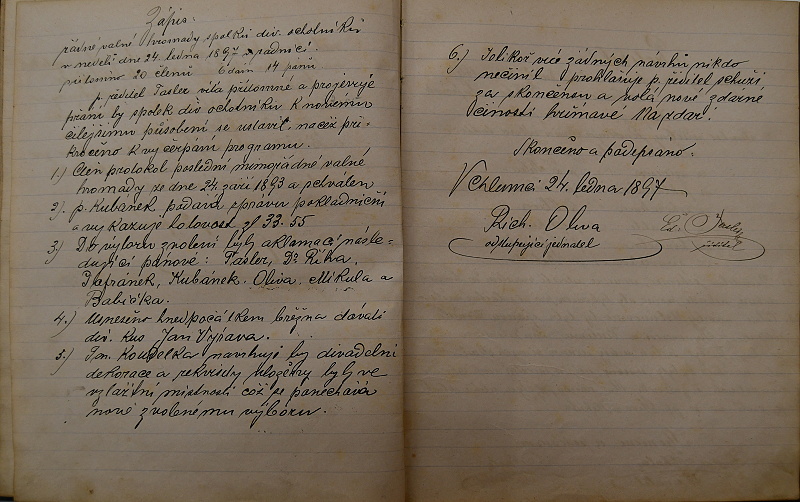 Zápis:
řádné valné hromady spolku div. ochotníků
v neděli dne 24. ledna 1897 v radnici.
přítomno 20 členů 6 dam 14 pánů
p. ředitel Tasler vítá přítomné a projevuje
přání by spolek div. ochotníků k novému
čilejšímu působení se ustavil, načež při-
kročeno k vyčerpání programu.
1.) Čten protokol poslední mimořádné valné
hromady se dne 24. září 1893 a schválen
2). p. Kubánek podává zprávu pokladniční
a vykazuje hotovost zl 33.55
3) Do výboru zvoleni byli aklamací násle-
dující pánové: Tasler, Dr. Říha,
Šafránek, Kubánek. Oliva, Mikula a
Babička.
4.) Usneseno hned počátkem března dávati
div. kus Jan Výrava.
5.) Pan Koudelka navrhuje by divadelní
dekorace a rekvisity uloženy byly ve
zvláštní místnosti což se ponechává
nově zvolenému výboru.
6.) Jelikož více žádných návrhů nikdo
nečinil prohlašuje p. ředitel schůzi
za skončenou a volá nové zdárné
činnosti hřímavé Nazdar.
Skončeno a podepsáno.
V Chlumci 24. ledna 1897
Rich. Oliva
odstupující jednatel
ředitel